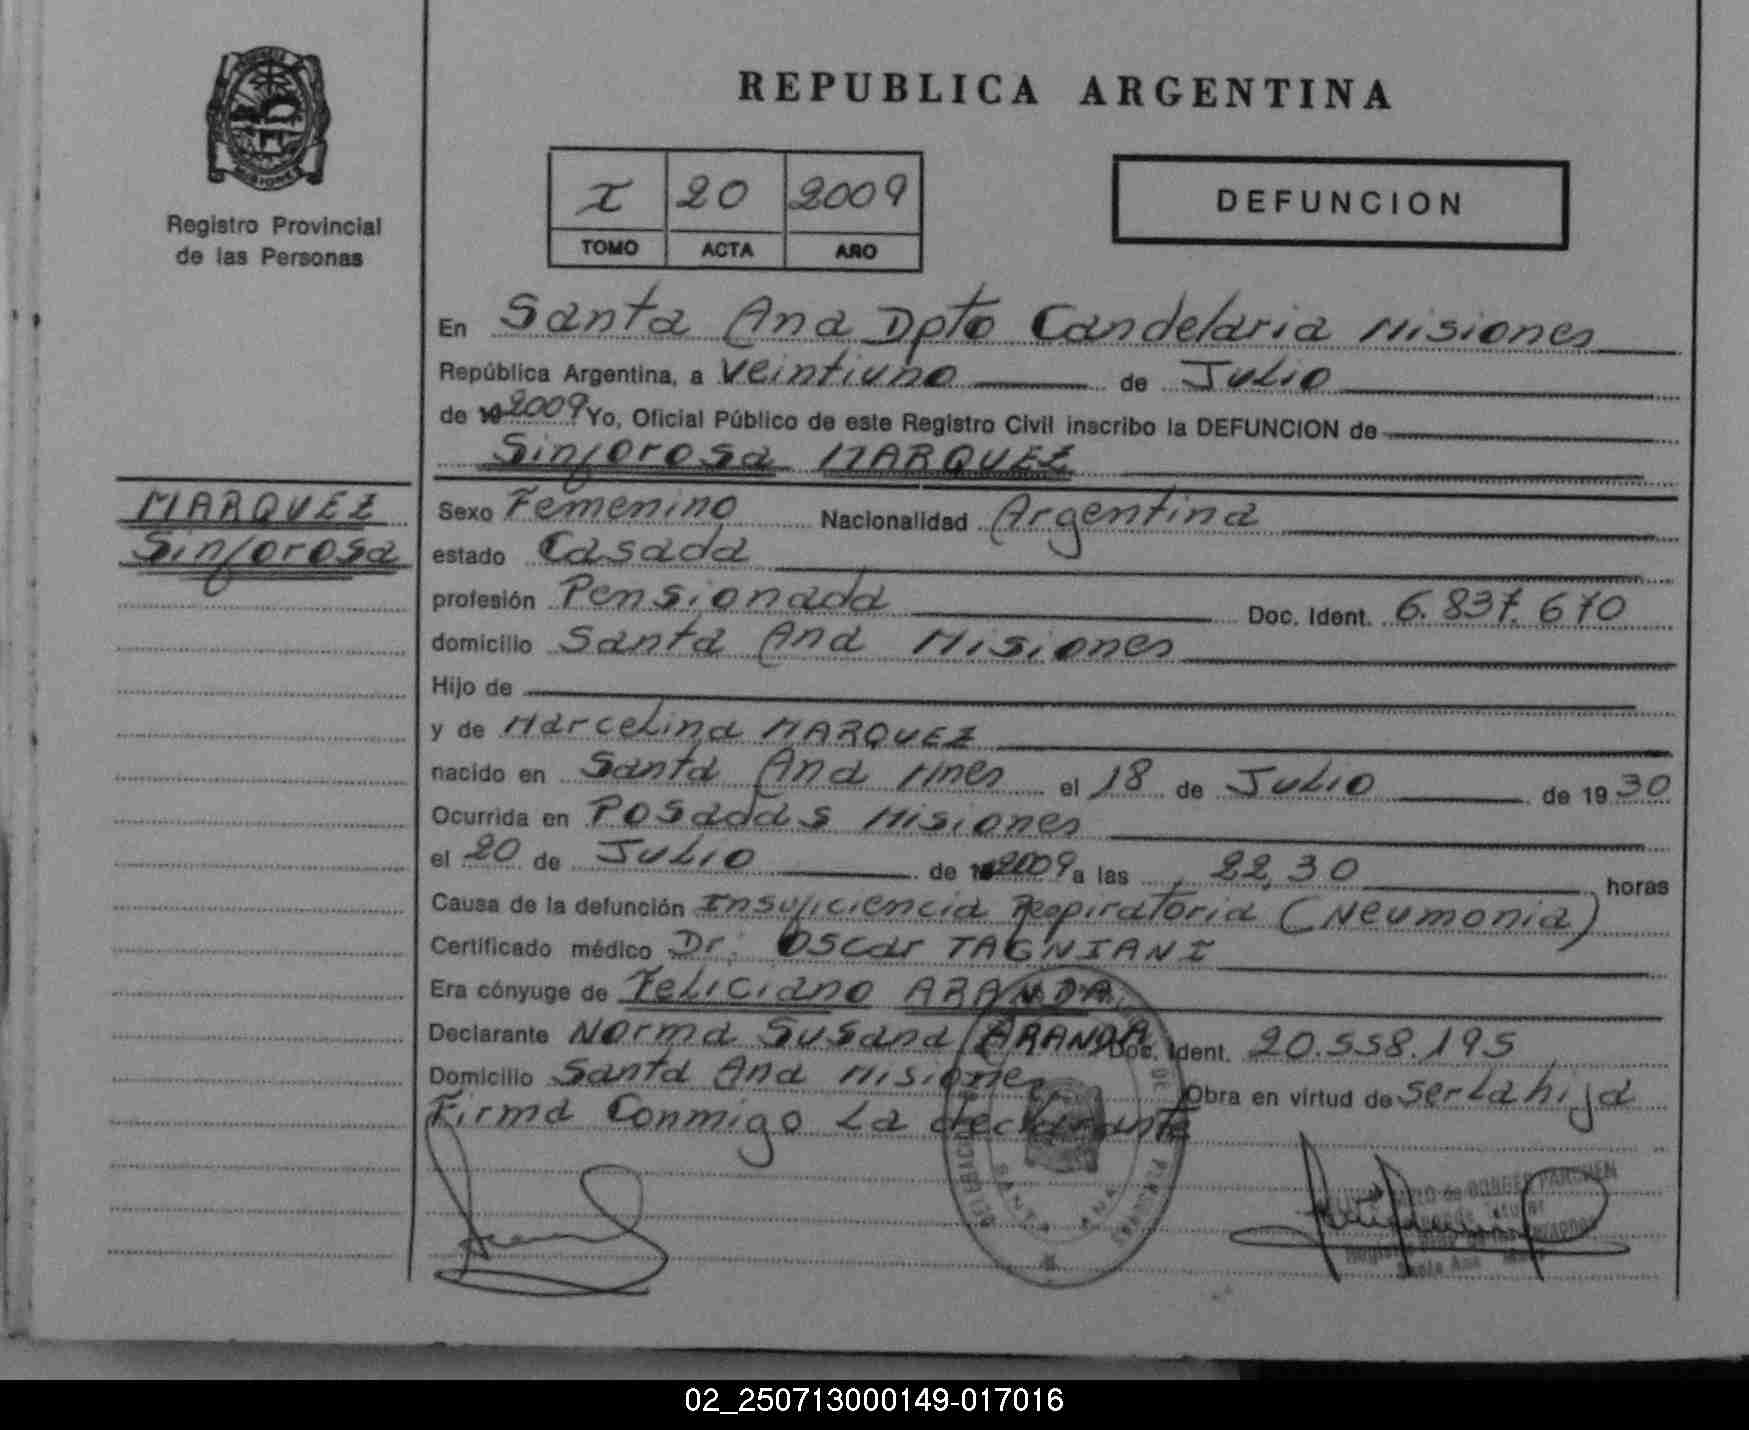 REPUBLICA ARGENTINA
MISIONES
Registro Provincial
de las Personas
I 20 2009
TOMO ACTA AÑO
DEFUNCION
En Santa Ana Dpto Candelaria Misiones
República Argentina, a Veintiuno de Julio
de 19 2009 Yo, Oficial Público de este Registro Civil inscribo la DEFUNCION de
Sinforosa MARQUEZ
MARQUEZ
Sinforosa
Sexo Femenino Nacionalidad Argentina
estado Casada
profesión Pensionada Doc. Ident. 6.837.670
domicilio Santa Ana Misiones
Hijo de
y de Marcelina MARQUEZ
nacido en Santa Ana Mnes el 18 de Julio de 1930
Ocurrida en Posadas Misiones
el 20 de Julio de 2009 a las 22,30 horas
Causa de la defunción Insuficiencia Respiratoria (Neumonia)
Certificado médico Dr. Oscar TAGNIANI
Era cónyuge de Feliciano ARANDA
Declarante Norma Susana ARANDA Doc. Ident. 20.558.195
Domicilio Santa Ana Misiones Obra en virtud de ser la hija
Firma Conmigo La declarante
SANTA ANA
Santa Ana
02_250713000149-017016